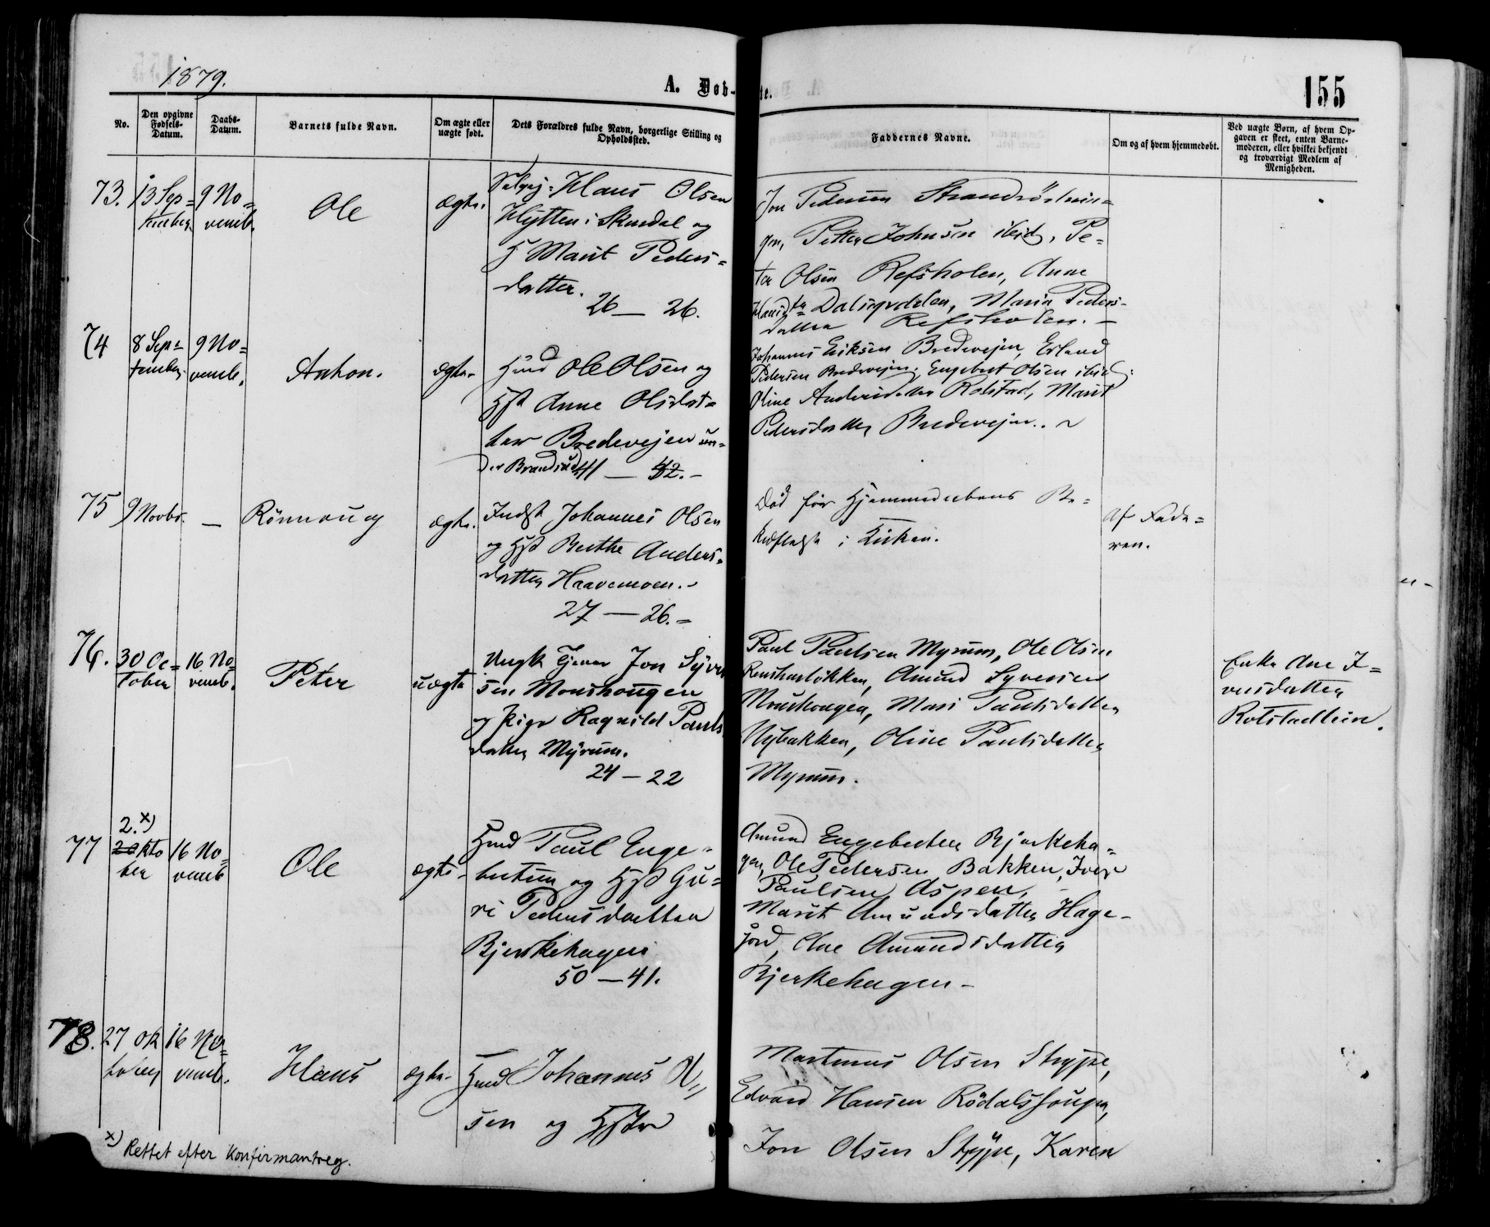 1879.
A. Døb-
te.
155
No.
Den opgivne Fødsels-Datum.
Daabs-Datum.
Barnets fulde Navn.
Om ægte eller uægte født.
Dets Forældres fulde Navn, borgerlige Stilling og Opholdssted.
Faddernes Navne.
Om og af hvem hjemmedøbt.
Ved uægte Børn, af hvem Op-
gaven er skeet, enten Barne-
moderen, eller hvilket bekjendt
og troværdigt Medlem af
Menigheden.
73.
13 Sep=
tember
9 No=
vemb.
Ole
ægte.
Selvej. Hans Olsen
Hytten i Skurdal og
H Marit Peders=
datter.
26 — 26.
Jon Pedersen
Petter Johnsen ibid, Pe=
ter Olsen Refsholen, Anne
Maria Peders-
datter Refsholen. —
74
8 Sep=
tember
9 No=
vemb.
Anton.
ægte.
Husmd Ole Olsen og
Hst Anne Olsdat=
ter Bredevejen un=
der Brandrud 41 — 42.-
Johannes Eriksen Bredevejen, Erland
Pedersen Bredevejen, Engebret Olsen ibid,
Oline Andersdatter Rolstad, Marit
Pedersdatter Bredevejen.
75
9 Novbr.
—
Rönnoug
ægte.
Indst Johannes Olsen
og Hst Berthe Anders=
datter Haavemoen. -
27 — 26. =
Død før Hjemmedaabens Be=
kræftelse i Kirken.
Af Fade=
ren.
76.
30 Oc=
tober
16 No=
vemb.
Peter
uægte
Ungk Tjener Jon Syver
sen Monshougen
og Pige Ragnild Pauls
datter Myrum.
24 — 22
Paul Paulsen Myrum, Ole Olsen
Amund Syversen
Monshougen, Mari Paulsdatter
Nybakken, Oline Paulsdatter
Myrum.
Enke Ane I=
versdatter
Rolstadlien.
77
2.x)
20 Okto
ber
16 No=
vemb
Ole
ægte -
Husmd Paul Enge-
bretsen og Hst Gu=
ri Pedersdatter
Bjerkehagen
50 — 41.
Amund Engebretsen Bjerkeha-
gen, Ole Pedersen Bakken, Iver
Paulsen Aspen,
Marit Amundsdatter Hage-
jord, Ane Amundsdatter
Bjerkehagen -
78.
27 Ok
tober
16 No=
vemb.
Hans
ægte.
Husmd Johannes Ol=
sen og Hstr
Martinus Olsen Strype,
Edvard Hansen
Jon Olsen Strype, Karen
x) Rettet efter Konfirmantreg.